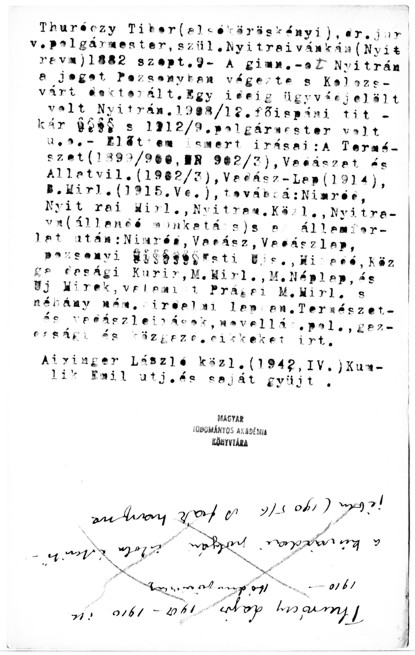 Thuróczy Tibor(alsóköröskényi),dr.jur
v.polgármester,szül.Nyitraivánkán(Nyit
ravm)1882 szept.9- A gimn.-ot Nyitrán
a jogot Pozsonyban végezte s Kolozs-
várt doktorált.Egy ideig ügyvédjelölt
volt Nyitrán.1908/12.főispáni tit-
kár s 1912/9.polgármester volt
u.o.- Előttem ismert írásai:A Termé-
szet(1899/900, 902/3),Vadászat és
Állatvil.(1902/3),Vadász-Lap(1914),
B.Hirl.(1915.Ve.),továbbá:Nimród,
Nyit rai Hirl.,Nyitram.Közl.,Nyitra-
vm(állandó munkatárs)s az államfor-
lat után:Nimród,Vadász,Vadászlap,
pozsonyi Esti Ujs.,Hiradó,Köz
gazdasági Kurir,M.Hirl.,M.Néplap,és
Uj Hirek,valamint Prágai M.Hirl. s
néhány ném. irodalmi lapban.Természet-
és vadászleirások,novellák,pol.,gaz-
dasági és közgazd.cikkeket irt.
Aixinger László közl.(1942,IV.)Kum-
lik Emil utj.és saját gyüjt .
MAGYAR
TUDOMÁNYOS AKADÉMIA
KÖNYVTÁRA
Thuróczy Lajos 1910
1910 —
a